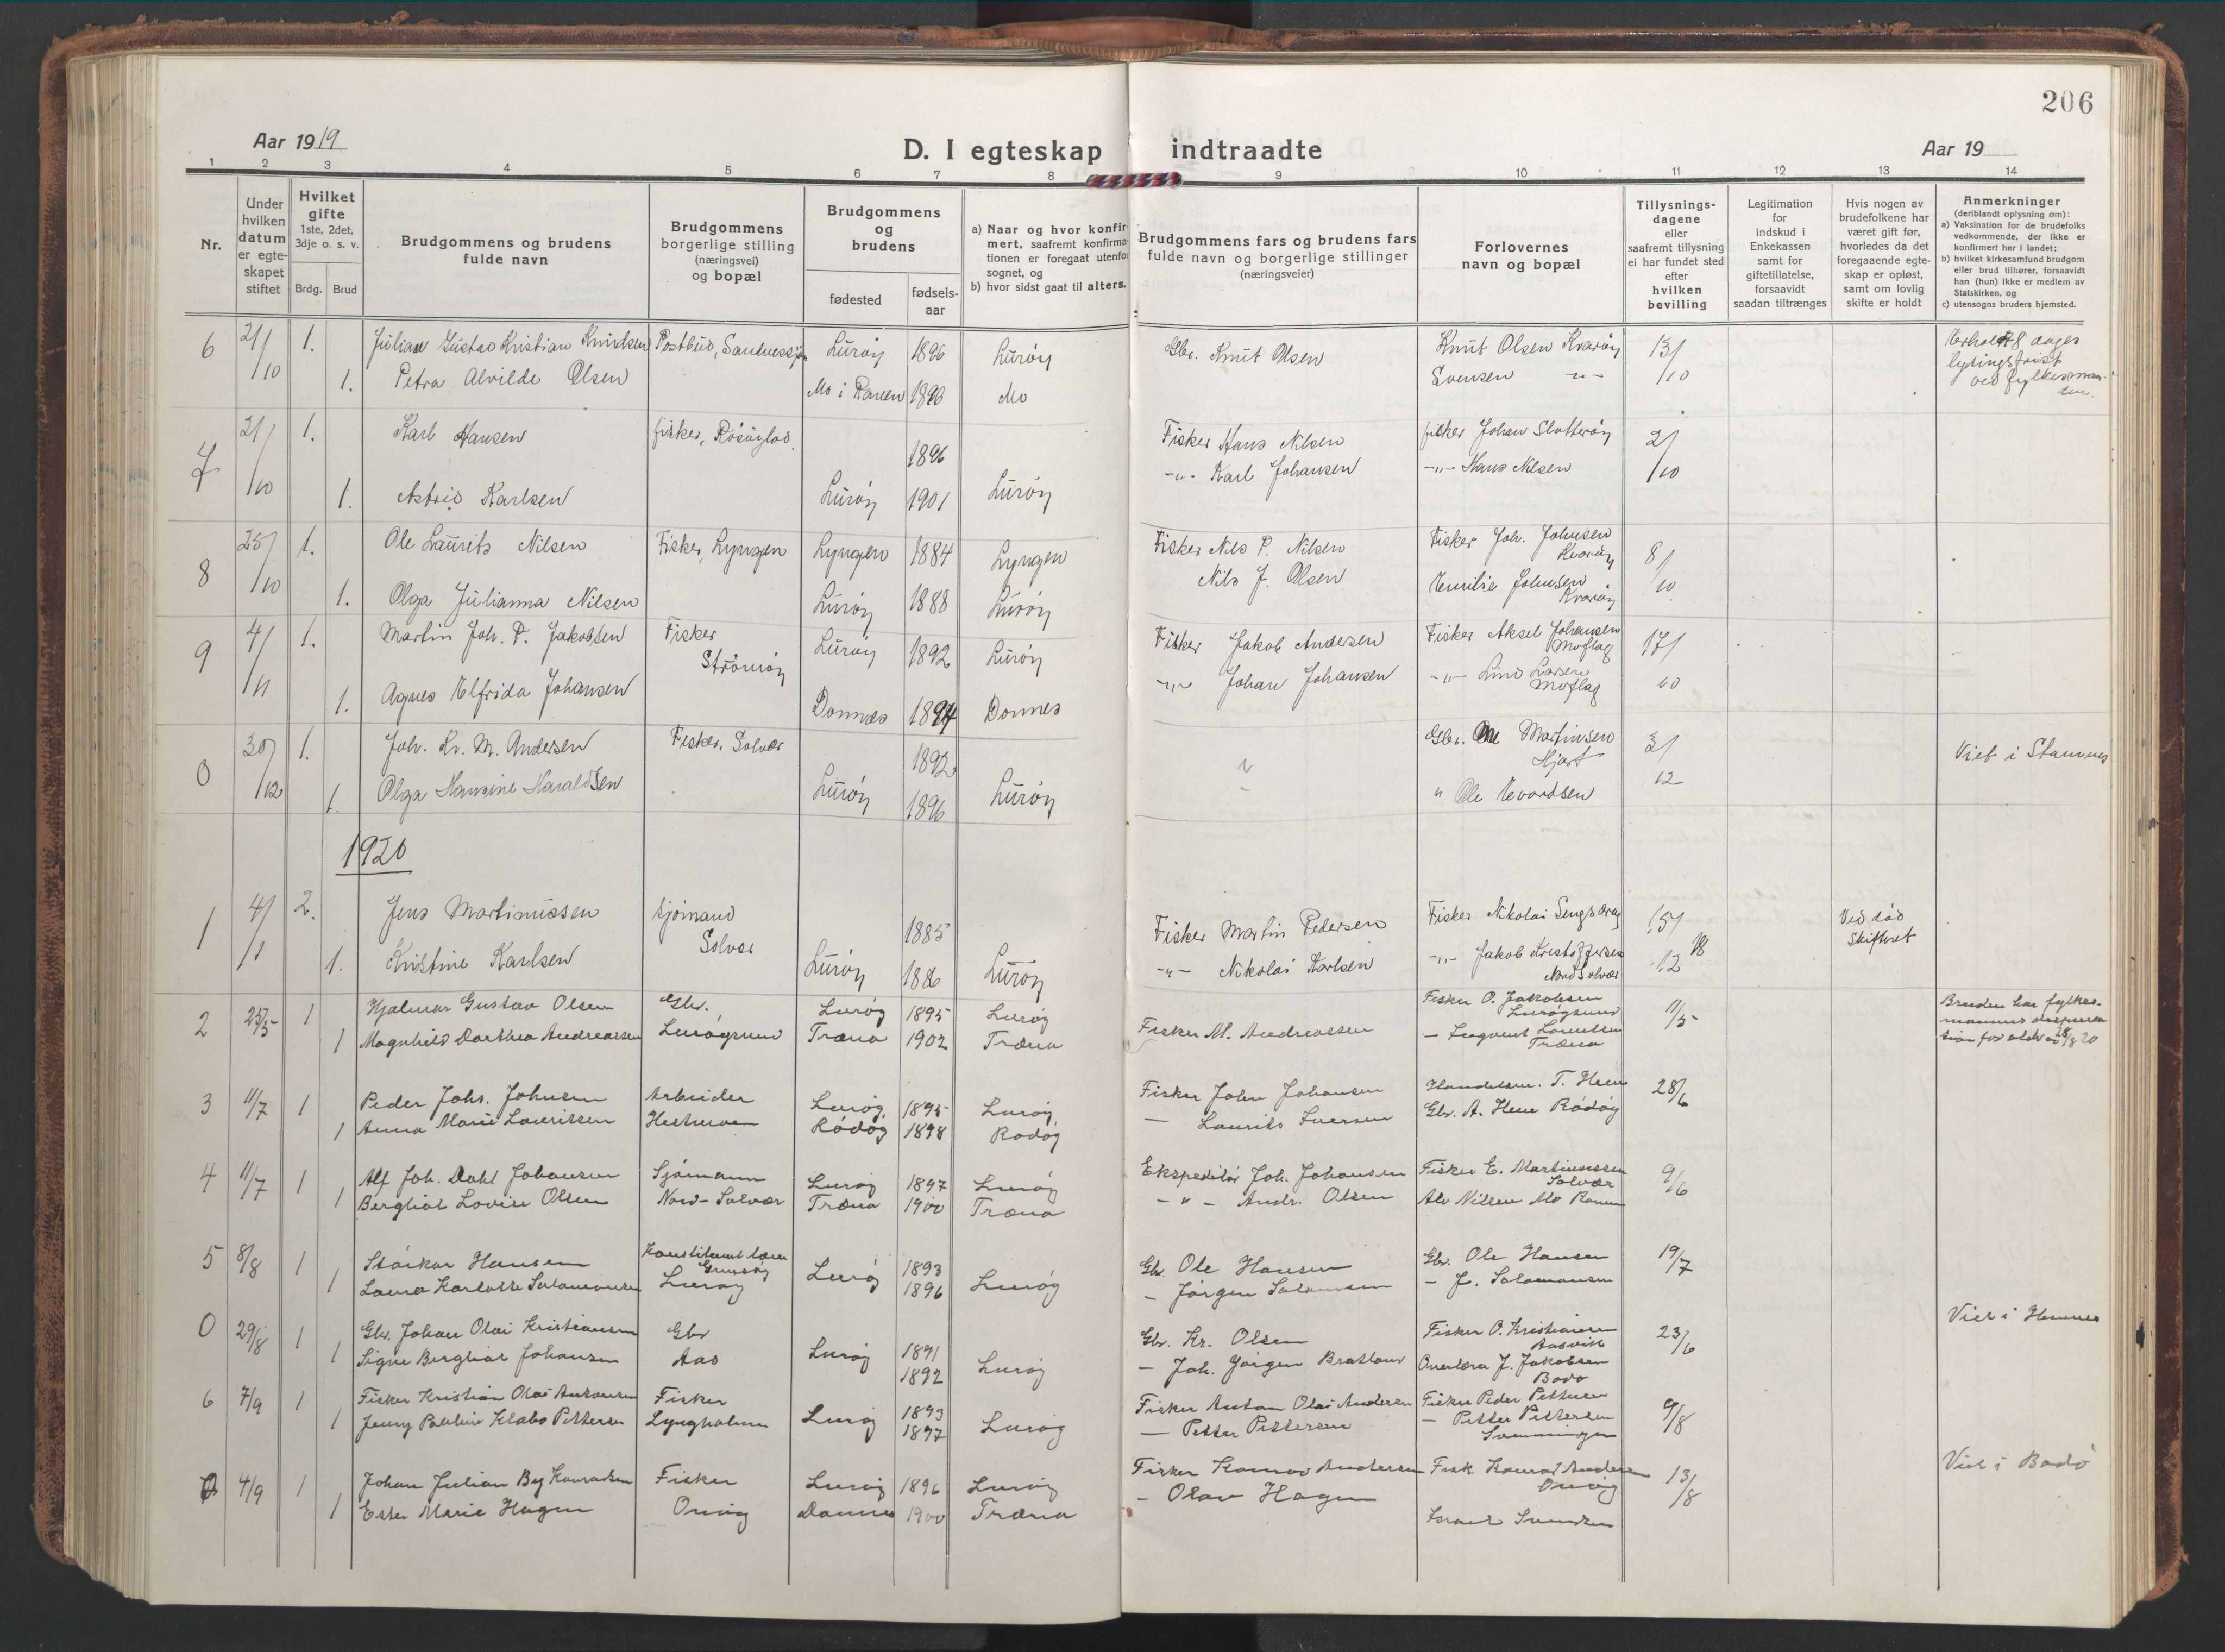 206
Aar 1919
D. I egteskap indtraadte
Aar 19
1 2 3 4 5 6 7 8 9 10 11 12 13 14
Nr.
Under hvilken datum er egteskapet stiftet
Hvilket gifte 1ste, 2det, 3dje o. s. v.
Brdg. Brud
Brudgommens og brudens fulde navn
Brudgommens borgerlige stilling (næringsvei) og bopæl
Brudgommens og brudens
fødested
fødselsaar
a) Naar og hvor konfirmert, saafremt konfirmationen er foregaat utenfor sognet, og
b) hvor sidst gaat til alters.
Brudgommens fars og brudens fars fulde navn og borgerlige stillinger (næringsveier)
Forlovernes navn og bopæl
Tillysningsdagene eller saafremt tillysning ei har fundet sted efter hvilken bevilling
Legitimation for indskud i Enkekassen samt for giftetillatelse, forsaavidt saadan tiltrænges
Hvis nogen av brudefolkene har været gift før, hvorledes da det foregaaende egteskap er opløst, samt om lovlig skifte er holdt
Anmerkninger (deriblandt oplysning om):
a) Vaksination for de brudefolks vedkommende, der ikke er konfirmert her i landet;
b) hvilket kirkesamfund brudgom eller brud tilhører, forsaavidt han (hun) ikke er medlem av Statskirken, og
c) utensogns bruders hjemsted.
6 21/10 1. Julian Gustav Kristian Knudsen Postbud, Sandnessjøen Lurøy 1896 Lurøy Gbr. Knut Olsen Knut Olsen Kvarøy 13/10 8 dages lysingsfrist ved fylkesmannen.
1. Petra Alvilde Olsen Mo i Ranen Mo Svensen -"-
7 21/10 1. Karl Hansen fisker, 1896 Fisker Hans Nilsen fisker Johan Slotterøy 2/10
1. Astrid Karlsen Lurøy 1901 Lurøy -"- Karl Johansen -"- Hans Nilsen
8 25/10 1. Ole Laurits Nilsen Fisker, Lyngen Lyngen 1884 Lyngen Fisker Nils P. Nilsen Fisker Joh. Johnsen Kvarøy 8/10
1. Olga Julianna Nilsen Lurøy 1888 Lurøy Nils J. Olsen Emilie Johnsen Kvarøy
9 4/11 1. Martin Joh. P. Jakobsen Fisker Strømøy Lurøy 1892 Lurøy Fisker Jakob Andersen Fisker Aksel Johansen Moflag 17/10
1. Agnes Elfrida Johansen Dønnes 1894 Dønnes -"- Johan Johansen -"- Lind Larsen Moflag
0 30/12 1. Joh. Kr. M. Andersen Fisker, Solvær 1892 Gbr. Ole Martinsen Hjart 3/12 Viet i Stamnes
1. Olga Hansine Haraldsen Lurøy 1896 Lurøy " Ole Evardsen
1920
1 4/1 2. Jens Martinussen sjømand Solvær 1885 Fisker Martin Pedersen Fisker Nikolai 15/12 Ved død Skiftet
1. Kristine Karlsen Lurøy 1886 Lurøy -"- Nikolai Karlsen -"- Jakob Kristoffersen Nord Solvær
2 25/5 1 Hjalmar Gustav Olsen Gbr. Lurøy 1895 Lurøy Fisker O. Jakobsen Lurøysund 11/5 Bruden har fylkesmannens dispensation for alder
1 Magnhild Dorthea Andreassen Lurøysund Træna 1902 Træna Fisker M. Andreassen Træna
3 11/7 1 Peder Johs. Johnsen Arbeider Lurøy 1895 Lurøy Fisker John Johansen Handelsm. T. Heen 28/6
1 Anna Marie Lauritssen Hestmoen Rødøy 1898 Rødøy — Laurits Iversen Gbr. A. Rødøy
4 11/7 1 Alf Joh. Dahl Johansen Sjømann Lurøy 1897 Lurøy Ekspeditør Joh. Johansen Fisker E. Martinussen Solvær 9/6
1 Bergliot Lovise Olsen Nord-Solvær Træna 1900 Træna -"- Andr. Olsen Alv Nilsen Mo Ranen
5 8/8 1 Størkar Hansen Lurøy Lurøy 1893 Lurøy Gbr. Ole Hansen Gbr. Ole Hansen 19/7
1 Laura Karlotte Salamonsen 1896 — Jørgen Salamonsen — J. Salamonsen
0 29/8 1 Gbr. Johan Olai Kristiansen Gbr Aas Lurøy 1891 Lurøy Gbr. Kr. Olsen Fisker O. Kristiansen Aasvik 23/6 Viet i Hemnes
1 Signe Bergliot Johansen 1892 — Joh. Jørgen Bratland Overlærer J. Jakobsen Bodø
6 7/9 1 Fisker Kristian Olai Antonsen Fisker Lyngholmen Lurøy 1893 Lurøy Fisker Anton Olai Andersen Fisker Peder Pettersen 9/8
1 Jenny Pauline Klabo Pettersen 1897 — Petter Pettersen — Petter Pettersen
0 4/9 1 Johan Julian By Konradsen Fisker Onøy Lurøy 1896 Lurøy Fisker Konrad Andersen Fisk. Konrad Andersen Onøy 13/8 Viet i Bodø
1 Ester Marie Hagen Dønnes 1900 Træna — Olav Hagen Israel Svendsen